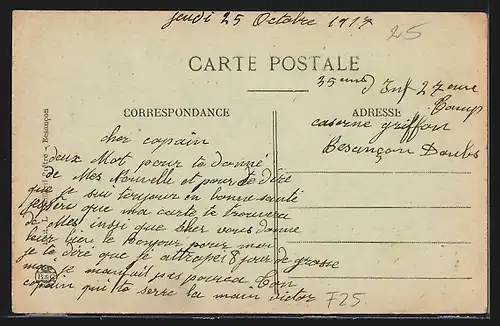 Jeudi 25 Octobre 1917
25
CARTE POSTALE
35eme d Inf 27eme
Comp
CORRESPONDANCE
ADRESSE
caserne griffon
Besançon Doubs
cher copain
deux Mot pour te donné
de Mes Nouvelle et pour te diré
que je sui toujour en bonne santé
j'espère que ma carte te trouvera
de Mes insi que cher vous donne
bien le bonjour pour moi
je te diré que je attrapé 8 jour de grosse
mai je manfait pas pour ca ton
copain qui te serre la main victor
F25.
Besançon
B&G